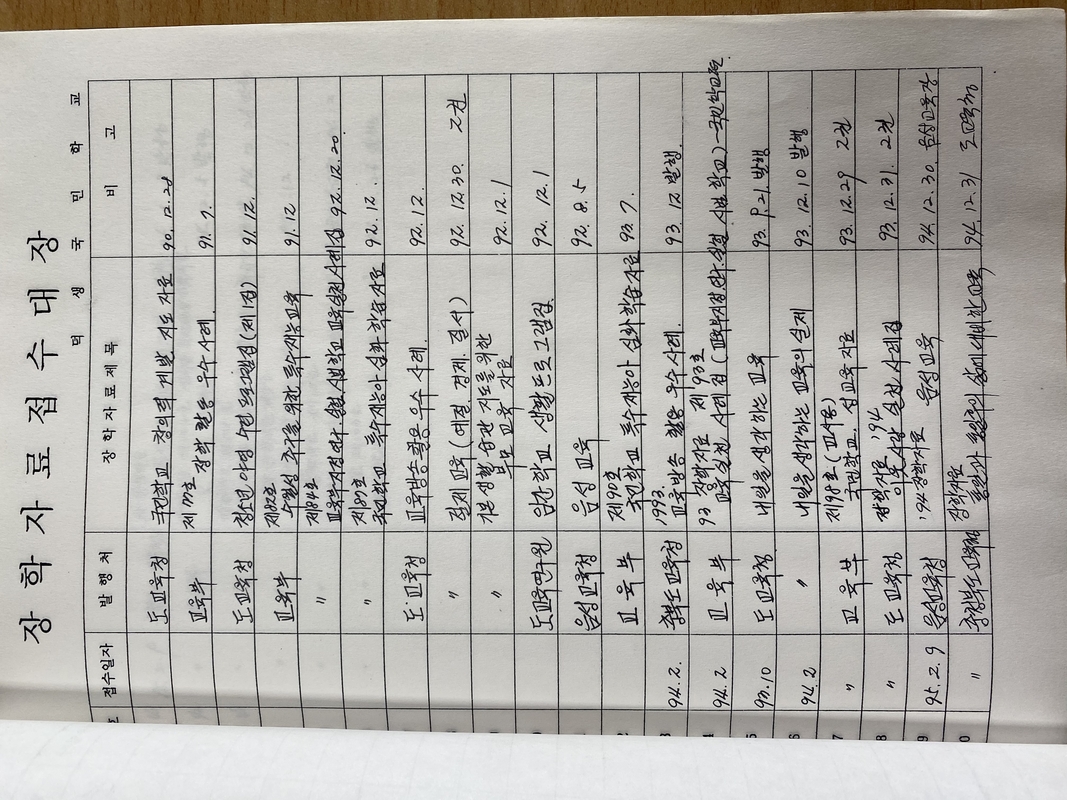 장 학 자 료 접 수 대 장
덕 생 국 민 학 교
호 접수일자 발 행 처 장 학 자 료 제 목 비 고
도교육청 국민학교 창의력 개발 지도 자료 90. 12. 28
교육부 제77호 장학 활동 우수 사례. 91. 7.
도교육청 청소년 야영 수련 프로그램집 (제1집) 91. 12.
제82호
교육부 수월성 추구를 위한 특수재능교육 91. 12
제84호
〃 교육부지정 연구.실험.시범학교 교육실천사례집 92. 12. 20.
제89호
〃 국민학교 특수재능아 심화 학습 자료 92. 12.
도.교육청 교육방송 활용 우수 사례. 92. 12.
〃 경제 교육 (예절. 경제. 질서) 92. 12. 30. 2권
〃 기본 생활 습관 지도를 위한 92. 12. 1
부모 교육 자료
도교육연구원 임간학교 생활 프로그램집 92. 12. 1
음성교육청 음성 교육 92. 8. 5
제90호
2 교 육 부 국민학교 특수재능아 심화학습자료 93. 7.
1993.
3 94. 2. 충북도교육청 교육방송 활용 우수 사례. 93. 12 발행.
93 장학자료 제93호
4 94. 2 교 육 부 교육실천 사례집 (교육부지정 연구.실험.시범학교)-국민학교편.
5 93. 10 도교육청 내일을 생각하는 교육 93. 9. 21. 발행
6 94. 2 〃 내일을 생각하는 교육의 실제 93. 12. 10 발행
제98호 (교사용)
7 〃 교 육 부 국민학교. 성교육자료 93. 12. 29 2권
장학자료 '94
8 〃 도교육청 이웃사랑 실천 사례집 93. 12. 31. 2권
9 95. 2. 9 음성교육청 '94 장학자료 음성교육 94. 12. 30. 음성교육장
장학자료
0 〃 충청북도교육청 통일과 민주주의 삶에 대비한 교육 94. 12. 31 도교육청